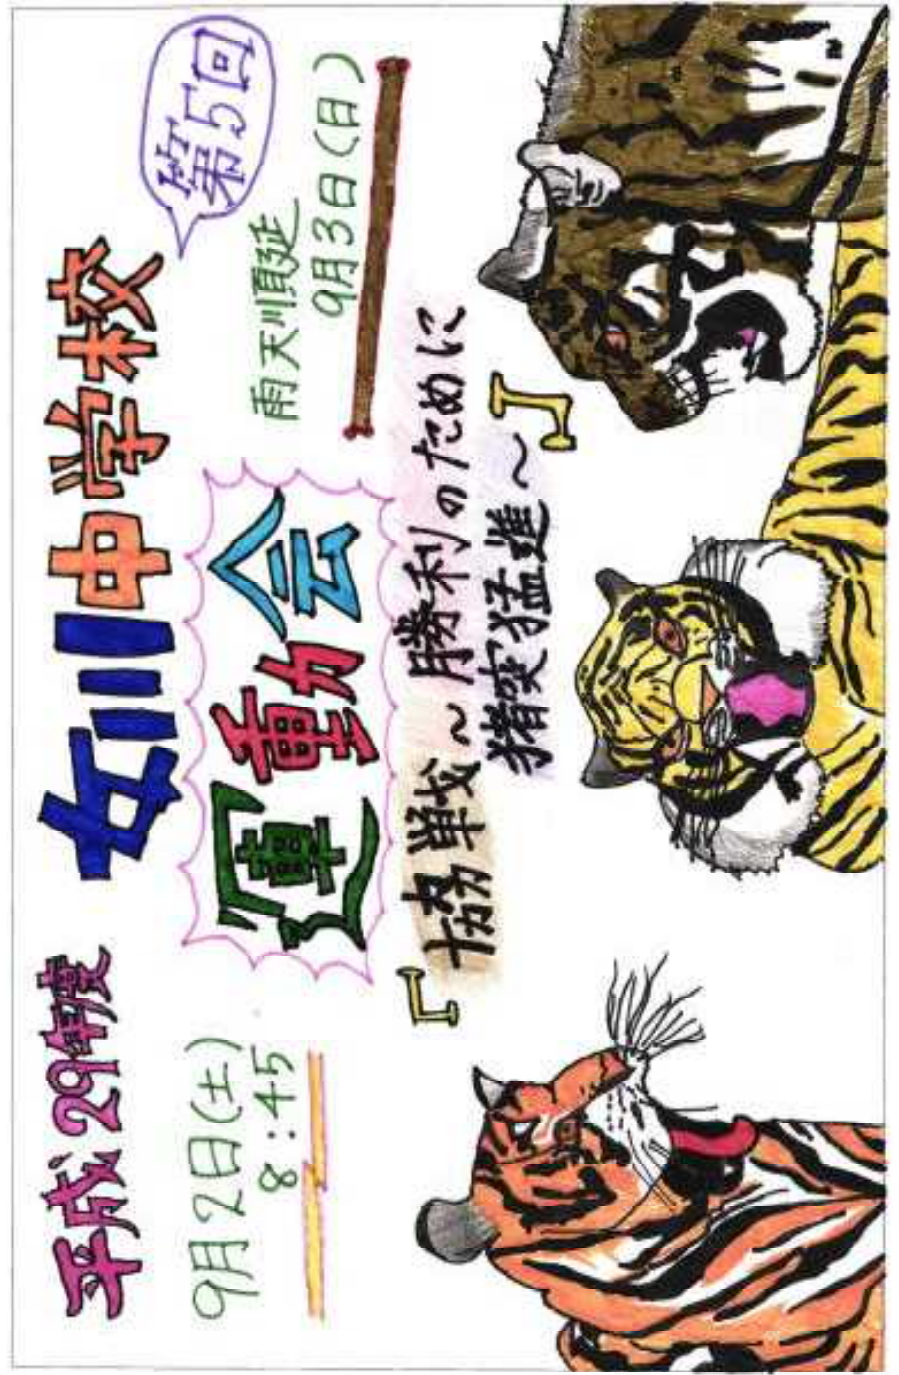 平成29年度 女川中学校
第5回
運動会
9月2日(土)
8:45
雨天順延
9月3日(日)
『協戦～勝利のために
猪突猛進～』